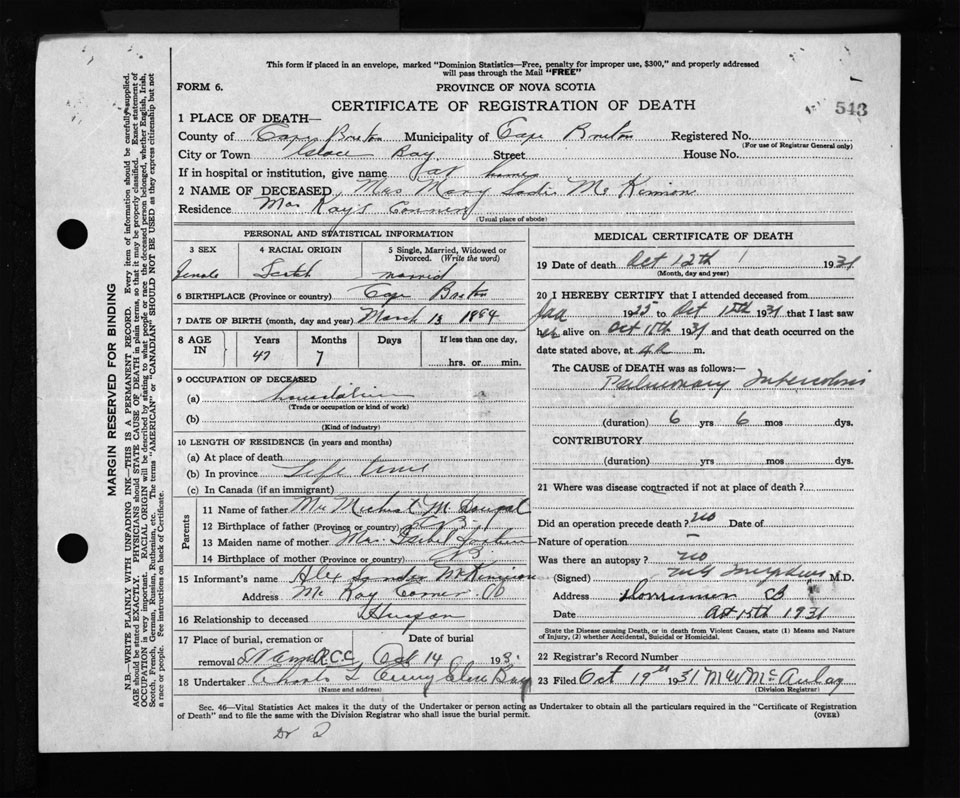 This form if placed in an envelope, marked "Dominion Statistics—Free, penalty for improper use, $300," and properly addressed
will pass through the Mail "FREE"
FORM 6. PROVINCE OF NOVA SCOTIA
CERTIFICATE OF REGISTRATION OF DEATH 543
1 PLACE OF DEATH—
County of Cape Breton Municipality of Cape Breton Registered No.
(For use of Registrar General only)
City or Town Glace Bay Street House No.
If in hospital or institution, give name at home
2 NAME OF DECEASED Mrs Mary Sadie McKinnon
Residence MacKay's Corner
(Usual place of abode)
PERSONAL AND STATISTICAL INFORMATION
3 SEX 4 RACIAL ORIGIN 5 Single, Married, Widowed or Divorced. (Write the word)
female Scotch married
6 BIRTHPLACE (Province or country) Cape Breton
7 DATE OF BIRTH (month, day and year) March 13 1884
8 AGE IN Years Months Days If less than one day,
47 7 hrs. or min.
9 OCCUPATION OF DECEASED
(a)
(Trade or occupation or kind of work)
(b)
(Kind of industry)
10 LENGTH OF RESIDENCE (in years and months)
(a) At place of death
(b) In province Life time
(c) In Canada (if an immigrant)
Parents
11 Name of father Mr Michael McDougal
12 Birthplace of father (Province or country) C.B.
13 Maiden name of mother Isabel
14 Birthplace of mother (Province or country) C.B.
15 Informant's name Alexander McKinnon
Address McKay Corner CB
16 Relationship to deceased
17 Place of burial, cremation or Date of burial
removal St Anns R.C.C. Oct 14 193
18 Undertaker Charles Curry Glace Bay
(Name and address)
MEDICAL CERTIFICATE OF DEATH
19 Date of death Oct 12th 1931
(Month, day and year)
20 I HEREBY CERTIFY that I attended deceased from
1925 to Oct 1931 that I last saw
her alive on Oct 1931 and that death occurred on
date stated above, at m.
The CAUSE of DEATH was as follows:—
Pulmonary Tuberculosis
(duration) 6 yrs 6 mos dys.
CONTRIBUTORY
(duration) yrs mos dys.
21 Where was disease contracted if not at place of death?
Did an operation precede death? no Date of
Nature of operation —
Was there an autopsy? no
(Signed) M.D.
Address Dominion CB
Date Oct 15th 1931
State the Disease causing Death, or in death from Violent Causes, state (1) Means and Nature
of Injury, (2) whether Accidental, Suicidal or Homicidal.
22 Registrar's Record Number
23 Filed Oct 19th 1931 M W McAulay
(Division Registrar)
Sec. 46—Vital Statistics Act makes it the duty of the Undertaker or person acting as Undertaker to obtain all the particulars required in the "Certificate of Registration
of Death" and to file the same with the Division Registrar who shall issue the burial permit. (OVER)
MARGIN RESERVED FOR BINDING
N.B.—WRITE PLAINLY WITH UNFADING INK—THIS IS A PERMANENT RECORD. Every item of information should be carefully supplied.
AGE should be stated EXACTLY. PHYSICIANS should STATE CAUSE OF DEATH in plain terms, so that it may be properly classified. Exact statement of
OCCUPATION is very important. RACIAL ORIGIN will be described by stating to what people or race the deceased person belonged, whether English, Irish,
Scotch, French, German, Russian, Ruthenian, etc. The terms "AMERICAN" or "CANADIAN" SHOULD NOT BE USED as they express citizenship but not
a race or people. See instructions on back of Certificate.